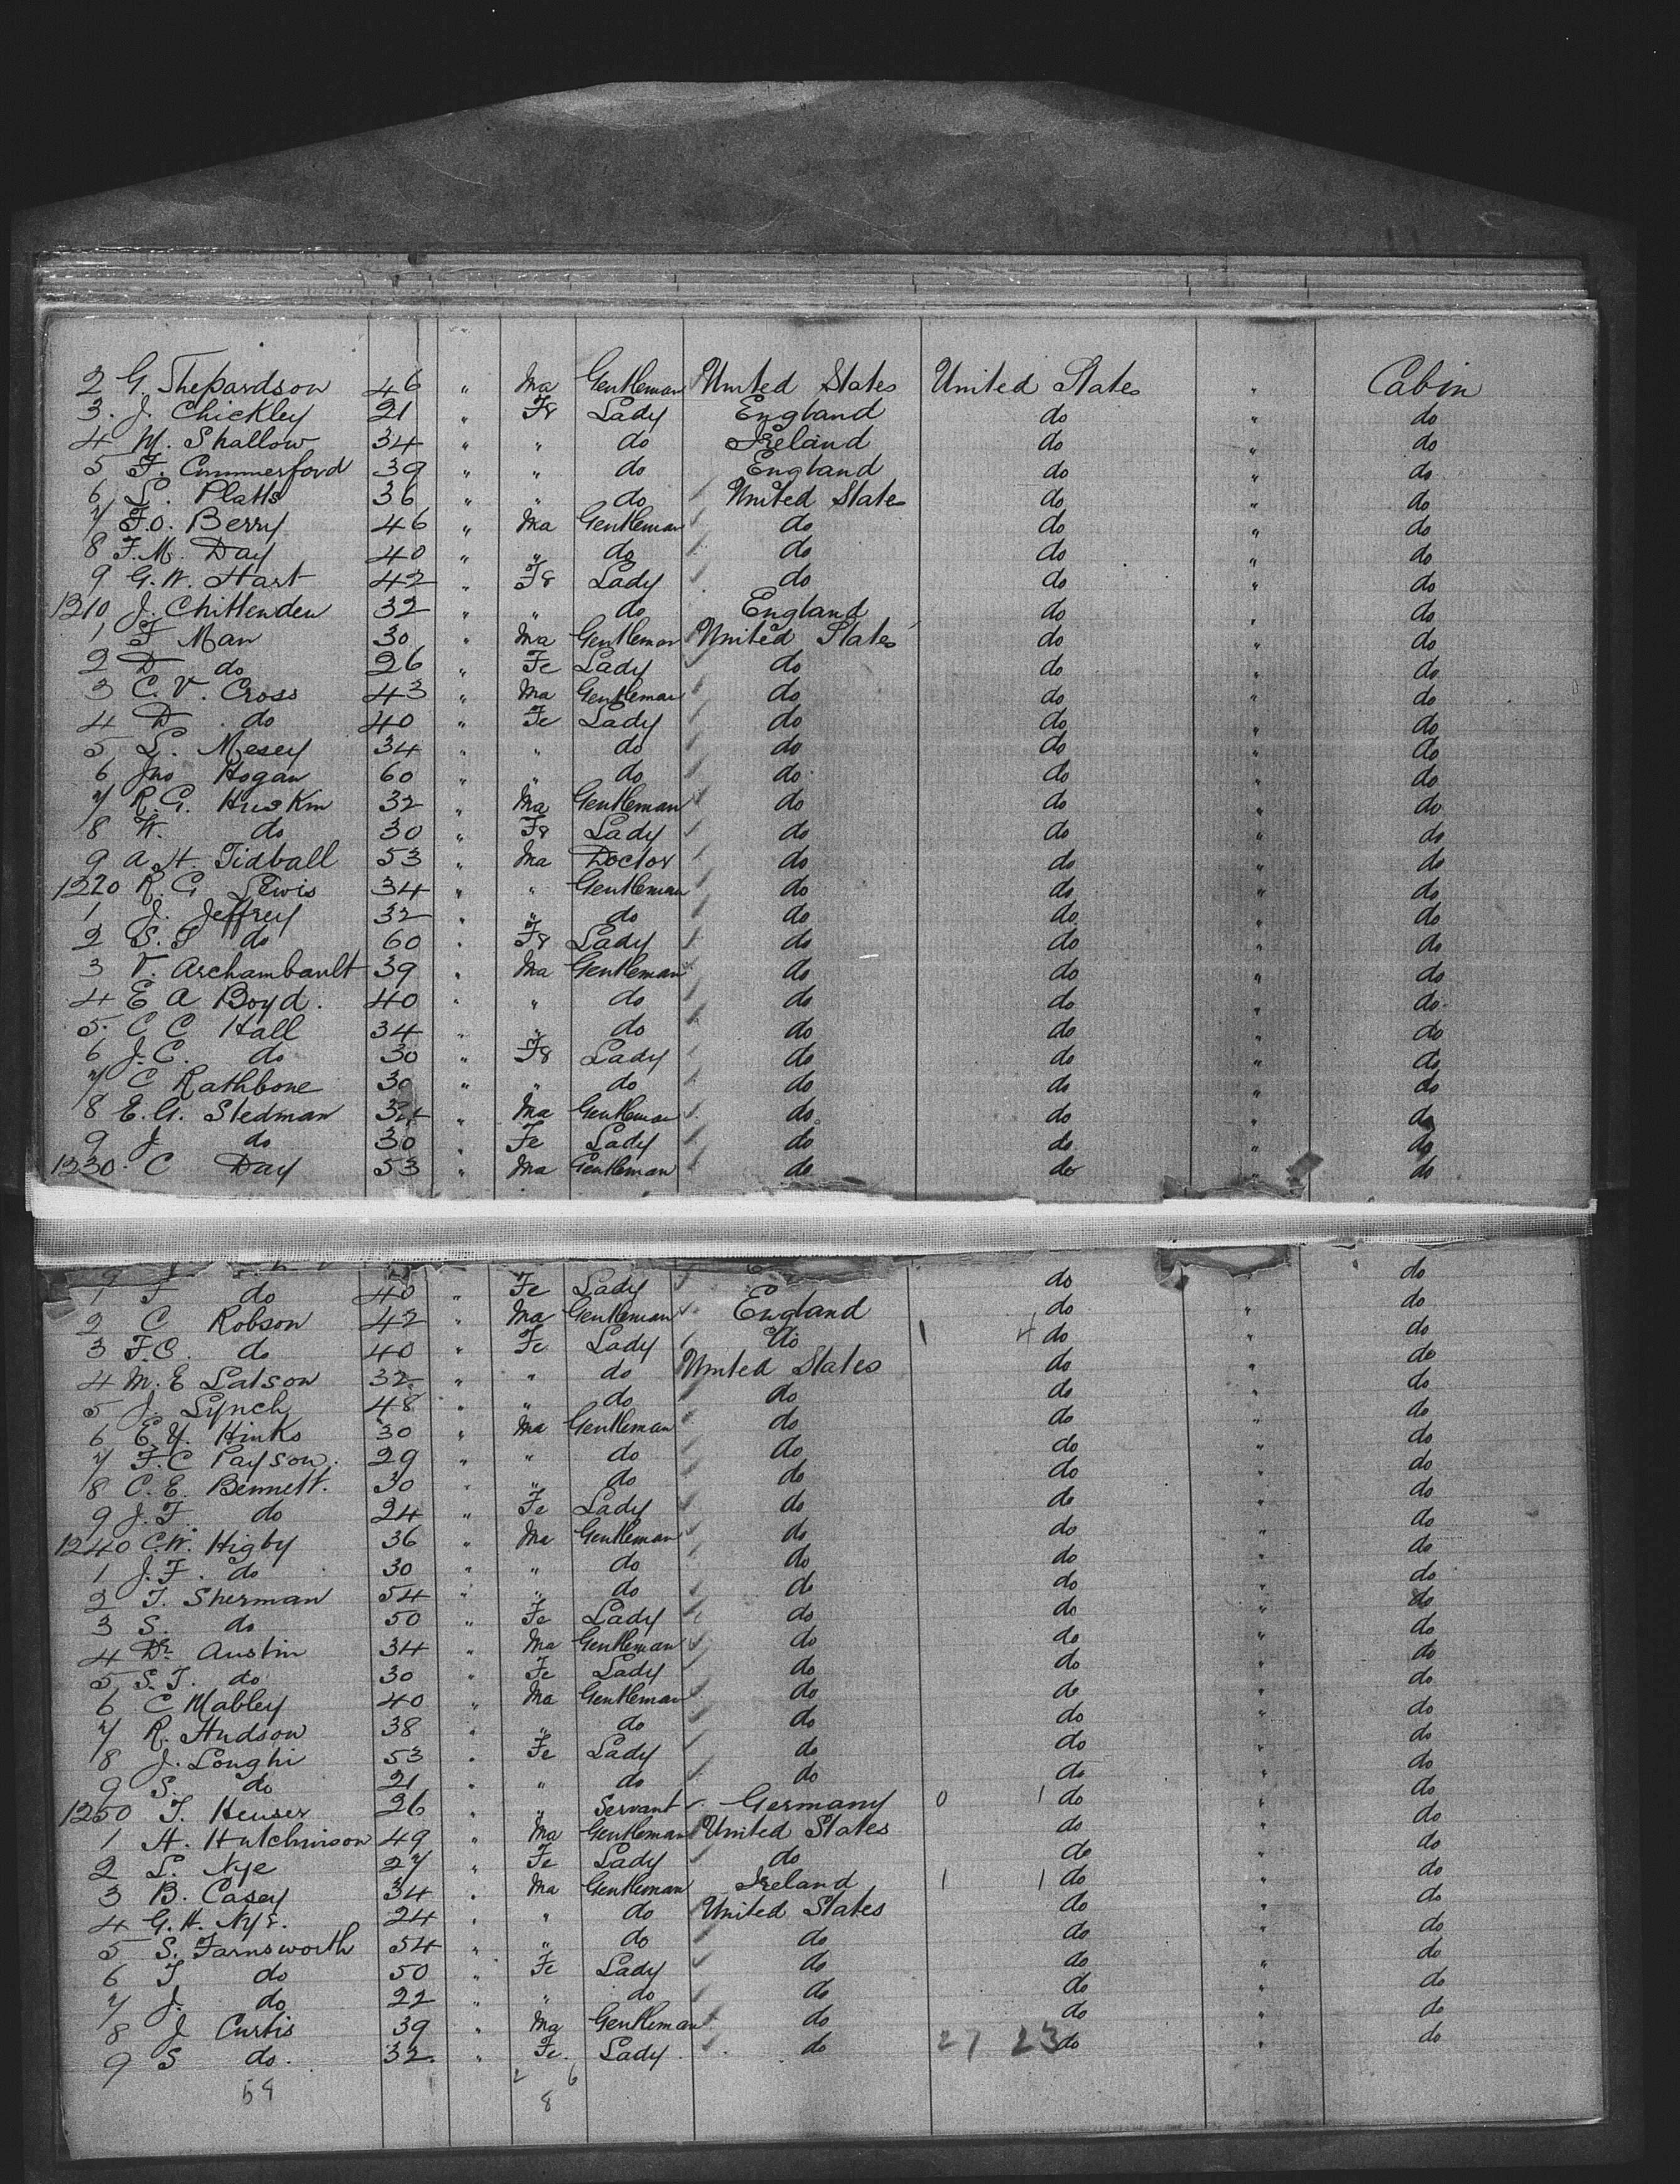 2 G. Shepardson 46 " Ma Gentleman United States United States " Cabin
3. J. Chickley 21 " Fe Lady England do " do
4 M. Shallow 34 " " do Ireland do " do
5 F. Cummerford 39 " " do England do " do
6 L. Platts 36 " " do United State do " do
7 F.O. Berry 46 " Ma Gentleman do do " do
8 F.M. Day 40 " " do do do " do
9 G.W. Hart 42 " Fe Lady do do " do
1210 J. Chittenden 32 " " do England do " do
1 F Man 30 " Ma Gentleman United States do " do
2 D do 26 " Fe Lady do do " do
3 C.V. Cross 43 " Ma Gentleman do do " do
4 D do 40 " Fe Lady do do " do
5 L. Mesey 34 " " do do do " do
6 Jno Hogan 60 " " do do do " do
7 R.G. Huskin 32 " Ma Gentleman do do " do
8 W. do 30 " Fe Lady do do " do
9 A.H. Tidball 53 " Ma Doctor do do " do
1220 R.G Lewis 34 " " Gentleman do do " do
1 J. Jeffrey 32 " " do do do " do
2 S.T do 60 " Fe Lady do do " do
3 V. Archambault 39 " Ma Gentleman do do " do
4 E A Boyd. 40 " " do do do " do
5. C C Hall 34 " " do do do " do
6 J.C. do 30 " Fe Lady do do " do
7 C Rathbone 30 " " do do do " do
8 E.G. Stedman 34 " Ma Gentleman do do " do
9 J do 30 " Fe Lady do do " do
1230. C Day 53 " Ma Gentleman do do " do
1 F do 40 " Fe Lady do do
2 C Robson 42 " Ma Gentleman England do " do
3 F.C. do 40 " Fe Lady do 1 4 do " do
4 M.E Latson 32 " " do United States do " do
5 J. Lynch 48 " " do do do " do
6 E.Y. Hinks 30 " Ma Gentleman do do " do
7 F.C Payson. 29 " " do do do " do
8 C.E. Bennett. 30 " " do do do " do
9 J.F. do 24 " Fe Lady do do " do
1240 C.W. Higby 36 " Ma Gentleman do do " do
1 J.F. do 30 " " do do do " do
2 T. Sherman 54 " " do do do " do
3 S. do 50 " Fe Lady do do " do
4 Dr. Austin 34 " Ma Gentleman do do " do
5 S.T. do 30 " Fe Lady do do " do
6 C Mabley 40 " Ma Gentleman do do " do
7 R. Hudson 38 " " do do do " do
8 J. Longhi 53 " Fe Lady do do " do
9 S. do 21 " " do do do " do
1250 T. Heuser 26 " " Servant Germany 0 1 do " do
1 H. Hutchinson 49 " Ma Gentleman United States do " do
2 L. Nye 27 " Fe Lady do do " do
3 B. Casey 34 " Ma Gentleman Ireland 1 1 do " do
4 G.H. Nye. 24 " " do United States do " do
5 S. Farnsworth 54 " " do do do " do
6 T do 50 " Fe Lady do do " do
7 J. do 22 " " do do do " do
8 J Curtis 39 " Ma Gentleman do do " do
9 S do. 32. " Fe. Lady do 27 23 do do
59 2 6
8